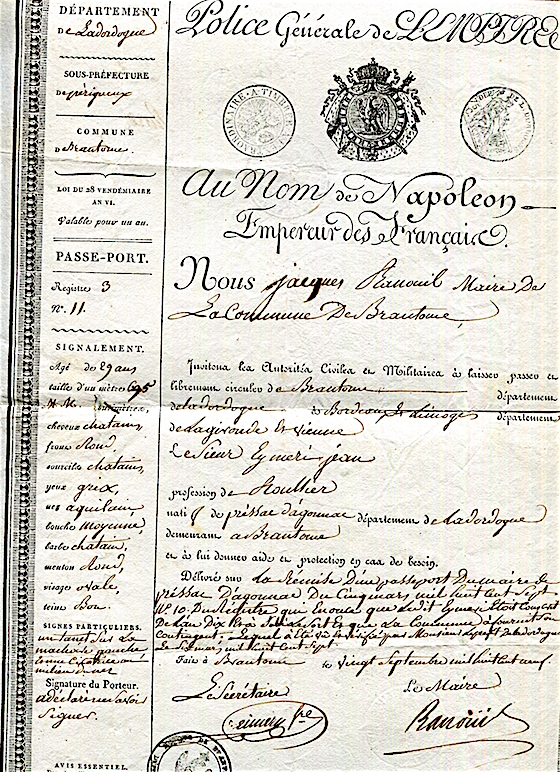 DÉPARTEMENT
De Ladordogne
SOUS-PRÉFECTURE
De périgueux
COMMUNE
De Brantome
LOI DU 28 VENDÉMIAIRE
AN VI.
Valable pour un an.
PASSE-PORT.
Registre 3
N.° 11.
SIGNALEMENT.
Agé de 29 ans
taille d'un mètre 695
cheveux chatain,
front Rond
sourcils chatain,
yeux grix,
nez aquilain,
bouche moyenne,
barbe chatain,
menton Rond,
visage ovale,
teint Bon.
SIGNES PARTICULIERS.
un tanet sur La
machoire gauche
Signature du Porteur.
a déclaré ne savoir
Signer.
AVIS ESSENTIEL.
Police Générale de L'EMPIRE
Au Nom de Napoléon
Empereur des Français.
Nous Jacques Ranouil Maire De
La Commune De Brantome,
Invitons les Autorités Civiles et Militaires à laisser passer et
librement circuler de Brantome, département
de Ladordogne à Bordeaux Et Limoges département
de Lagironde Et vienne
Le Sieur Eymeri jean
profession de Roullier
natif de préssac d'agonnac département de Ladordogne
demeurant a Brantome
et à lui donner aide et protection en cas de besoin.
Délivré sur La Remise D'un passeport Du maire de
préssac D'agonnac Du Cinq mars, mil huit Cent Sept
N.° 10 Du Registre qui Enonce que Ledit Eymeri Etoit Conscrit
De L'an Dix
Contingent, Lequel a été par Monsieur
Le Six mars, mil huit Cent Sept.
Fait à Brantome le vingt Septembre mil huit Cent neuf
Le Secrétaire
Le Maire
Ranouil